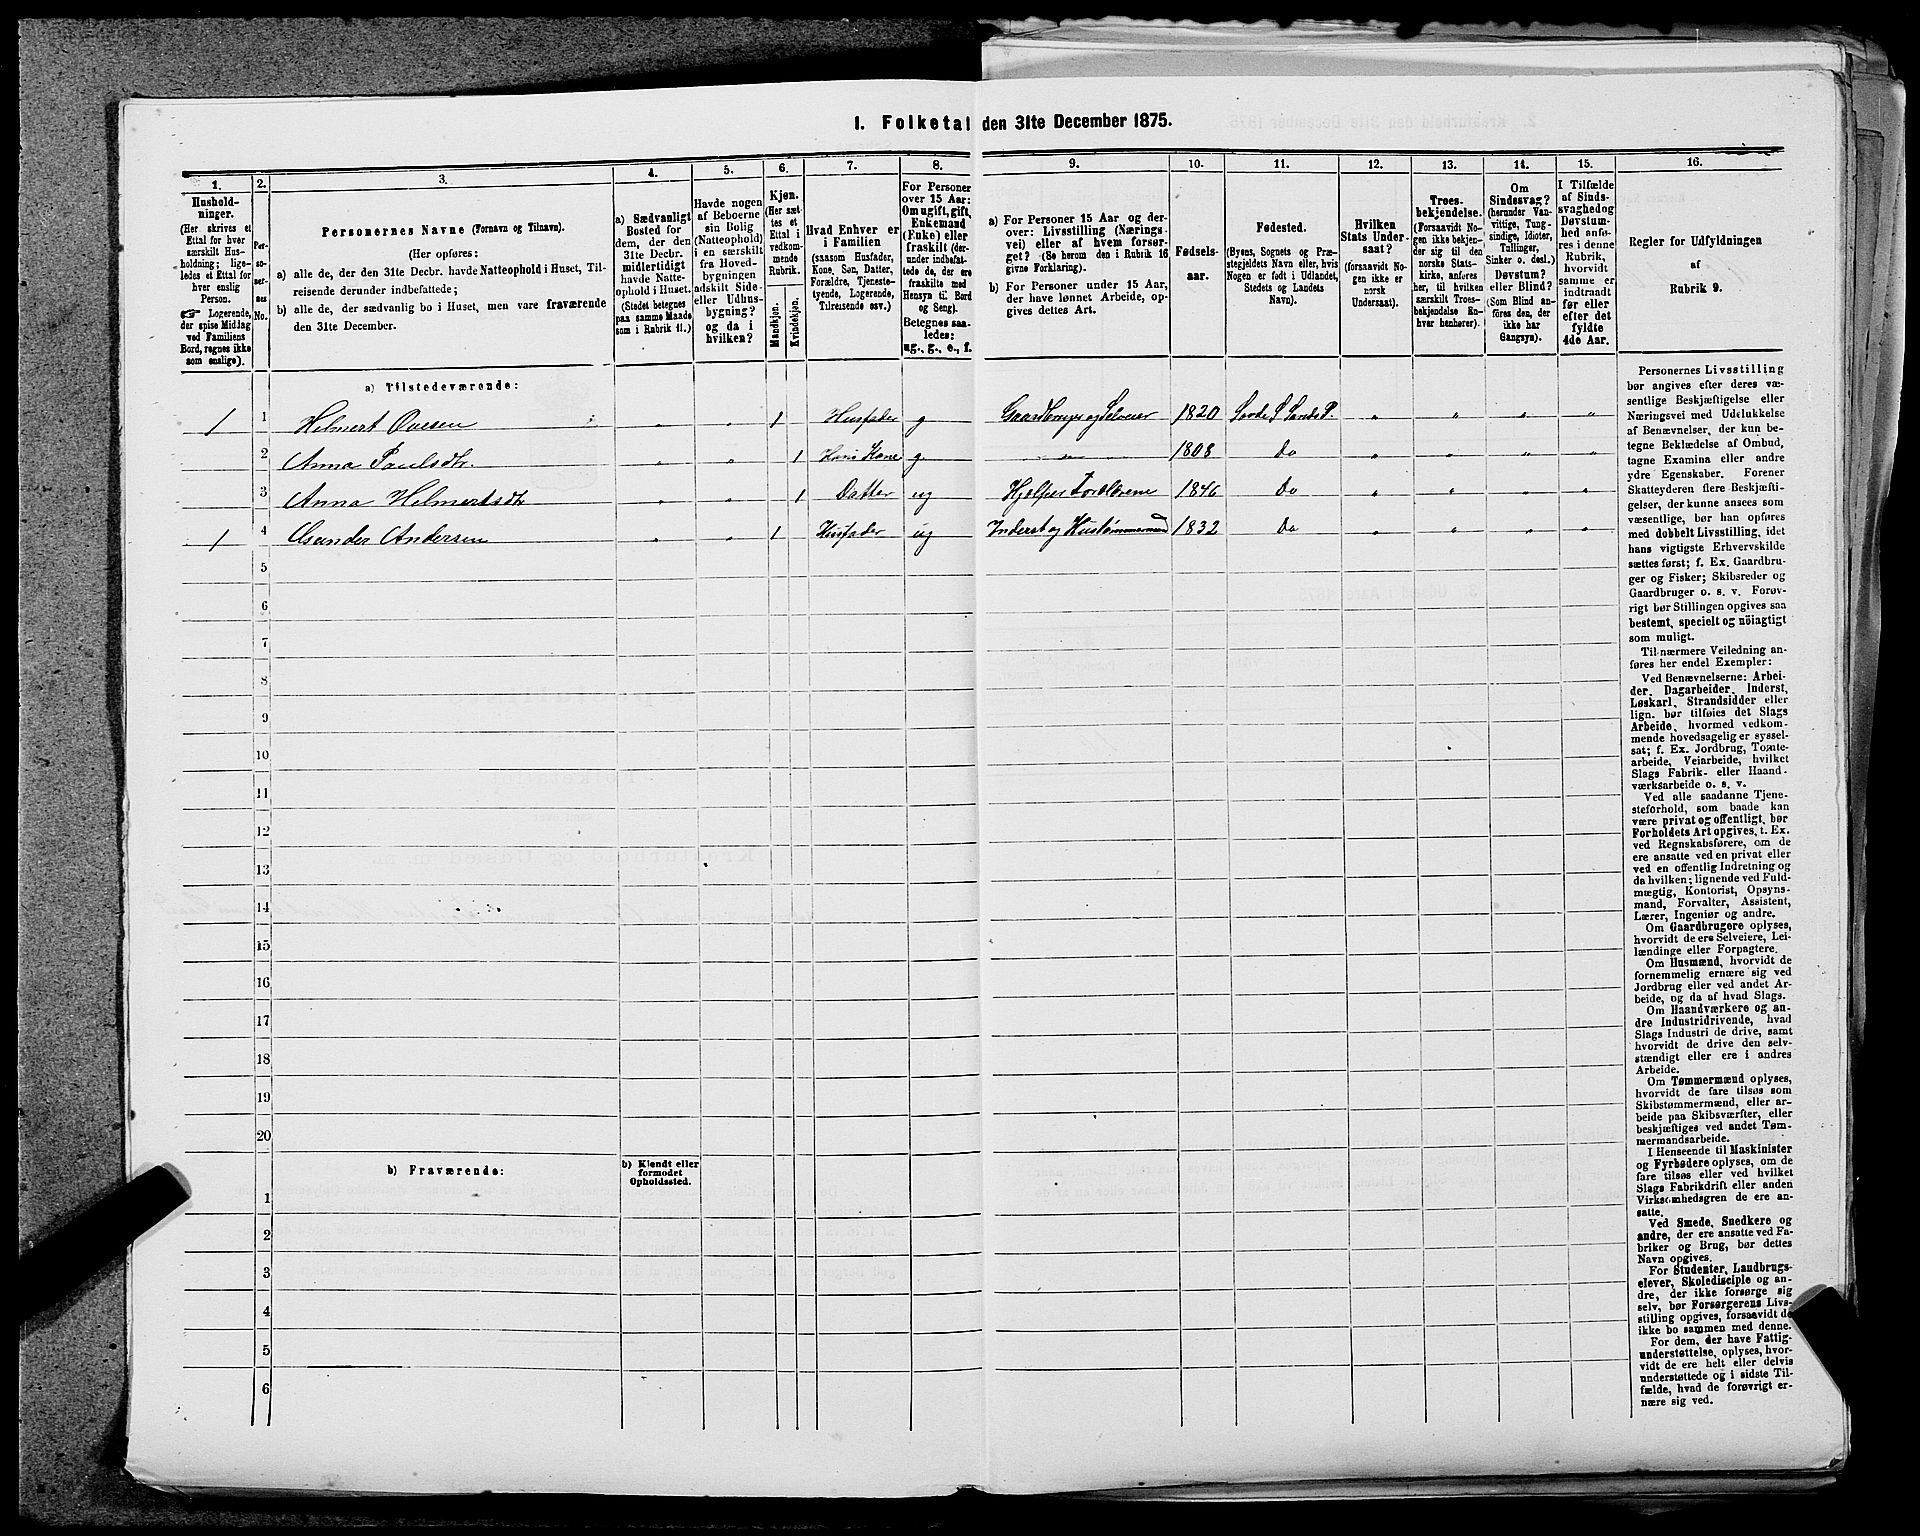 I. Folketal den 31te December 1875.
1.
Hushold-
ninger.
(Her skrives et
Ettal for hver
særskilt Hus-
holdning; lige-
ledes et Ettal for
hver enslig
Person.
☛ Logerende,
der spise Middag
ved Familiens
Bord, regnes ikke
som enslige).
2.
Per-
so-
ner-
nes
No.
3.
Personernes Navne (Fornavn og Tilnavn).
(Her opføres:
a) alle de, der den 31te Decbr. havde Natteophold i Huset, Til-
reisende derunder indbefattede;
b) alle de, der sædvanlig bo i Huset, men vare fraværende
den 31te December.
4.
a) Sædvanligt
Bosted for
dem, der den
31te Decbr.
midlertidigt
havde Natte-
ophold i Huset.
(Stedet betegnes
paa samme Maade
som i Rubrik 11.)
5.
Havde nogen
af Beboerne
sin Bolig
(Natteophold)
i en særskilt
fra Hoved-
bygningen
adskilt Side-
eller Udhus-
bygning?
og da i
hvilken?
6.
Kjøn.
(Her sæt-
tes et
Ettal i
vedkom-
mende
Rubrik.
Mandkjøn.
Kvindekjøn.
7.
Hvad Enhver er
i Familien
(saasom Husfader,
Kone, Søn, Datter,
Forældre, Tjeneste-
tyende, Logerende,
Tilreisende osv.)
8.
For Personer
over 15 Aar:
Om ugift, gift,
Enkemand
(Enke) eller
fraskilt (der-
under indbefat-
tede de, der ere
fraskilte med
Hensyn til Bord
og Seng).
Betegnes saa-
ledes:
ug., g., e., f.
9.
a) For Personer 15 Aar og der-
over: Livsstilling (Nærings-
vei) eller af hvem forsør-
get? (Se herom den i Rubrik 16
givne Forklaring).
b) For Personer under 15 Aar,
der have lønnet Arbeide, op-
gives dettes Art.
10.
Fødsels-
aar.
11.
Fødested.
(Byens, Sognets og Præ-
stegjeldets Navn eller, hvis
Nogen er født i Udlandet,
Stedets og Landets
Navn).
12.
Hvilken
Stats Under-
saat?
(forsaavidt No-
gen ikke er
norsk
Undersaat).
13.
Troes-
bekjendelse.
(Forsaavidt No-
gen ikke bekjen-
der sig til den
norske Stats-
kirke, anføres
her, til hvilken
særskilt Troes-
bekjendelse En-
hver henhører).
14.
Om
Sindssvag?
(herunder Van-
vittige, Tung-
sindige, Idioter,
Tullinger,
Sinker o. desl.)
Døvstum?
eller Blind?
(Som Blind an-
føres den, der
ikke har
Gangsyn).
15.
I Tilfælde
af Sinds-
svaghed og
Døvstum-
hed anfø-
res i denne
Rubrik,
hvorvidt
samme er
indtraadt
før eller
efter det
fyldte
4de Aar.
16.
Regler for Udfyldningen
af
Rubrik 9.
a) Tilstedeværende:
1 1 Helmert Ovesen „ „ 1 Husfader g Gaardbruger og Selveier 1820 Sande S Sande P. „ „ „ „
2 Anna Paulsdtr. „ „ 1 Hans Kone g. „ 1808 Do „ „ „ „
3 Anna Helmertsdtr „ „ 1 Datter ug Hjelper Forældrene 1846 Do „ „ „ „
1 4 Asander Andersen „ „ 1 Husfader ug Inderst og Hustømmermand 1832 Do „ „ „ „
5
6
7
8
9
10
11
12
13
14
15
16
17
18
19
20
b) Fraværende:
b) Kjendt eller
formodet
Opholdssted.
1
2
3
4
5
6
Personernes Livsstilling
bør angives efter deres væ-
sentlige Beskjæftigelse eller
Næringsvei med Udelukkelse
af Benævnelser, der kun be-
tegne Beklædelse af Ombud,
tagne Examina eller andre
ydre Egenskaber. Forener
Skatteyderen flere Beskjæfti-
gelser, der kunne ansees som
væsentlige, bør han opføres
med dobbelt Livsstilling, idet
hans vigtigste Erhvervskilde
sættes først; f. Ex. Gaardbru-
ger og Fisker; Skibsreder og
Gaardbruger o. s. v. Forøv-
rigt bør Stillingen opgives saa
bestemt, specielt og nöiagtigt
som muligt.
Til nærmere Veiledning an-
føres her endel Exempler:
Ved Benævnelserne: Arbei-
der, Dagarbeider, Inderst,
Løskarl, Strandsidder eller
lign. bør tilføies det Slags
Arbeide, hvormed vedkom-
mende hovedsagelig er syssel-
sat; f. Ex. Jordbrug, Tomte-
arbeide, Veiarbeide, hvilket
Slags Fabrik- eller Haand-
værksarbeide o. s. v.
Ved alle saadanne Tjene-
steforhold, som baade kan
være privat og offentligt, bør
Forholdets Art opgives, t. Ex.
ved Regnskabsførere, om de
ere ansatte ved en privat eller
ved en offentlig Indretning og
da hvilken; lignende ved Fuld-
mægtig, Kontorist, Opsyns-
mand, Forvalter, Assistent,
Lærer, Ingeniør og andre.
Om Gaardbrugere oplyses,
hvorvidt de ere Selveiere, Lei-
lændinge eller Forpagtere.
Om Husmænd, hvorvidt de
fornemmelig ernære sig ved
Jordbrug eller ved andet Ar-
beide, og da af hvad Slags.
Om Haandværkere og an-
dre Industridrivende, hvad
Slags Industri de drive, samt
hvorvidt de drive den selv-
stændigt eller ere i andres
Arbeide.
Om Tømmermænd oplyses,
hvorvidt de fare tilsøs som
Skibstømmermænd, eller ar-
beide paa Skibsværfter, eller
beskjæftiges ved andet Tøm-
mermandsarbeide.
I Henseende til Maskinister
og Fyrbødere oplyses, om de
fare tilsøs eller ved hvilket
Slags Fabrikdrift eller anden
Virksomhedsgren de ere an-
satte.
Ved Smede, Snedkere og
andre, der ere ansatte ved Fa-
briker og Brug, bør dettes
Navn opgives.
For Studenter, Landbrugs-
elever, Skoledisciple og an-
dre, der ikke forsørge sig
selv, bør Forsørgerens Livs-
stilling opgives, forsaavidt de
ikke bo sammen med denne.
For dem, der have Fattig-
understøttelse, oplyses, hvor-
vidt de ere helt eller delvis
understøttede og i sidste Til-
fælde, hvad de forøvrigt er-
nære sig ved.